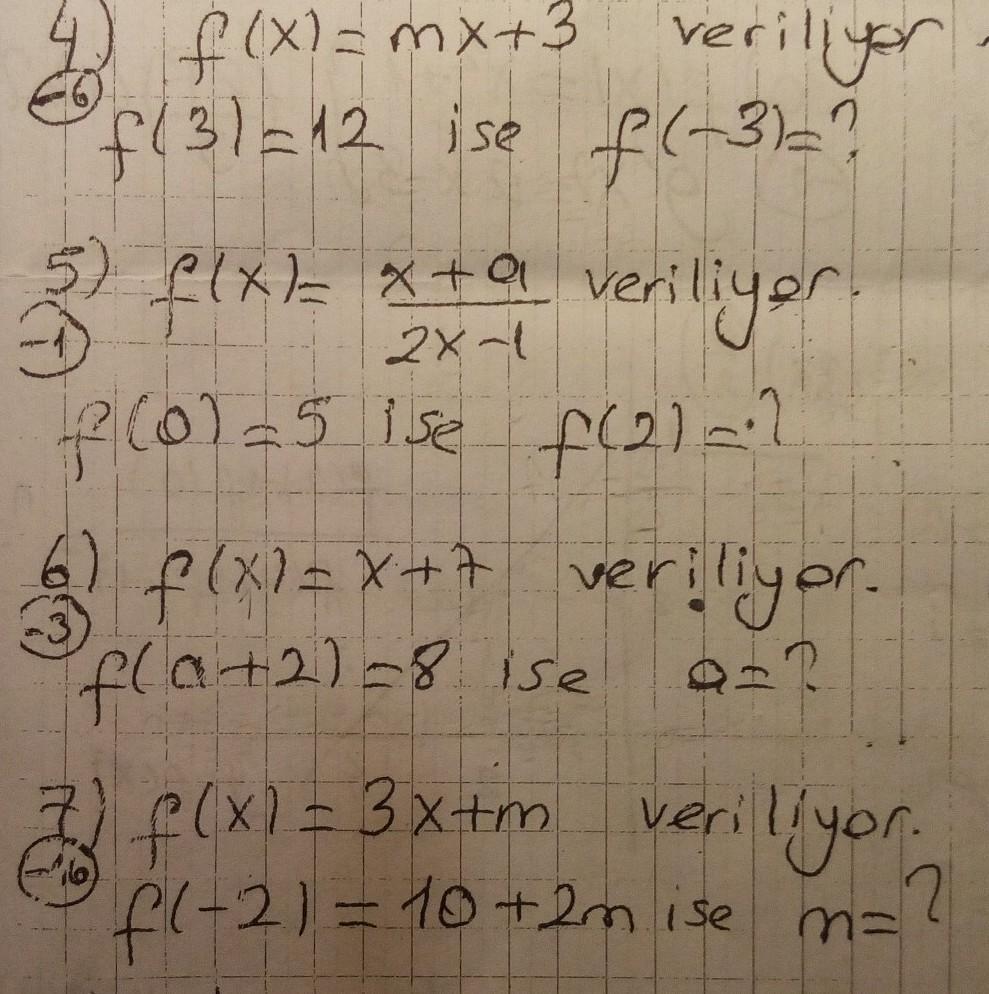 4) f(x)= mx+3 veriliyor.
-6
f(3)=12 ise f(-3)=?
5) f(x)= x+a veriliyor.
-1
2x-1
f(0)=5 ise f(2)=?
6) f(x)=x+7 veriliyor.
-3
f(a+2)=8 ise a=?
7) f(x)=3x+m veriliyor.
-16
f(-2)=10+2m ise m=?